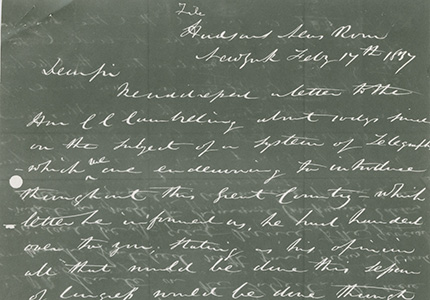 File
Hudsons News Room
New York Feby 17th 1837
Dear Sir
We addressed a letter to the
Hon C C Cambreleng about 10 days since
on the subject of a System of Telegraph
which we are endeavouring to introduce
throughout this great Country which
letter he informed us, he had handed
over to you. Stating as his opinion
all that could be done this Session
of Congress would be done through